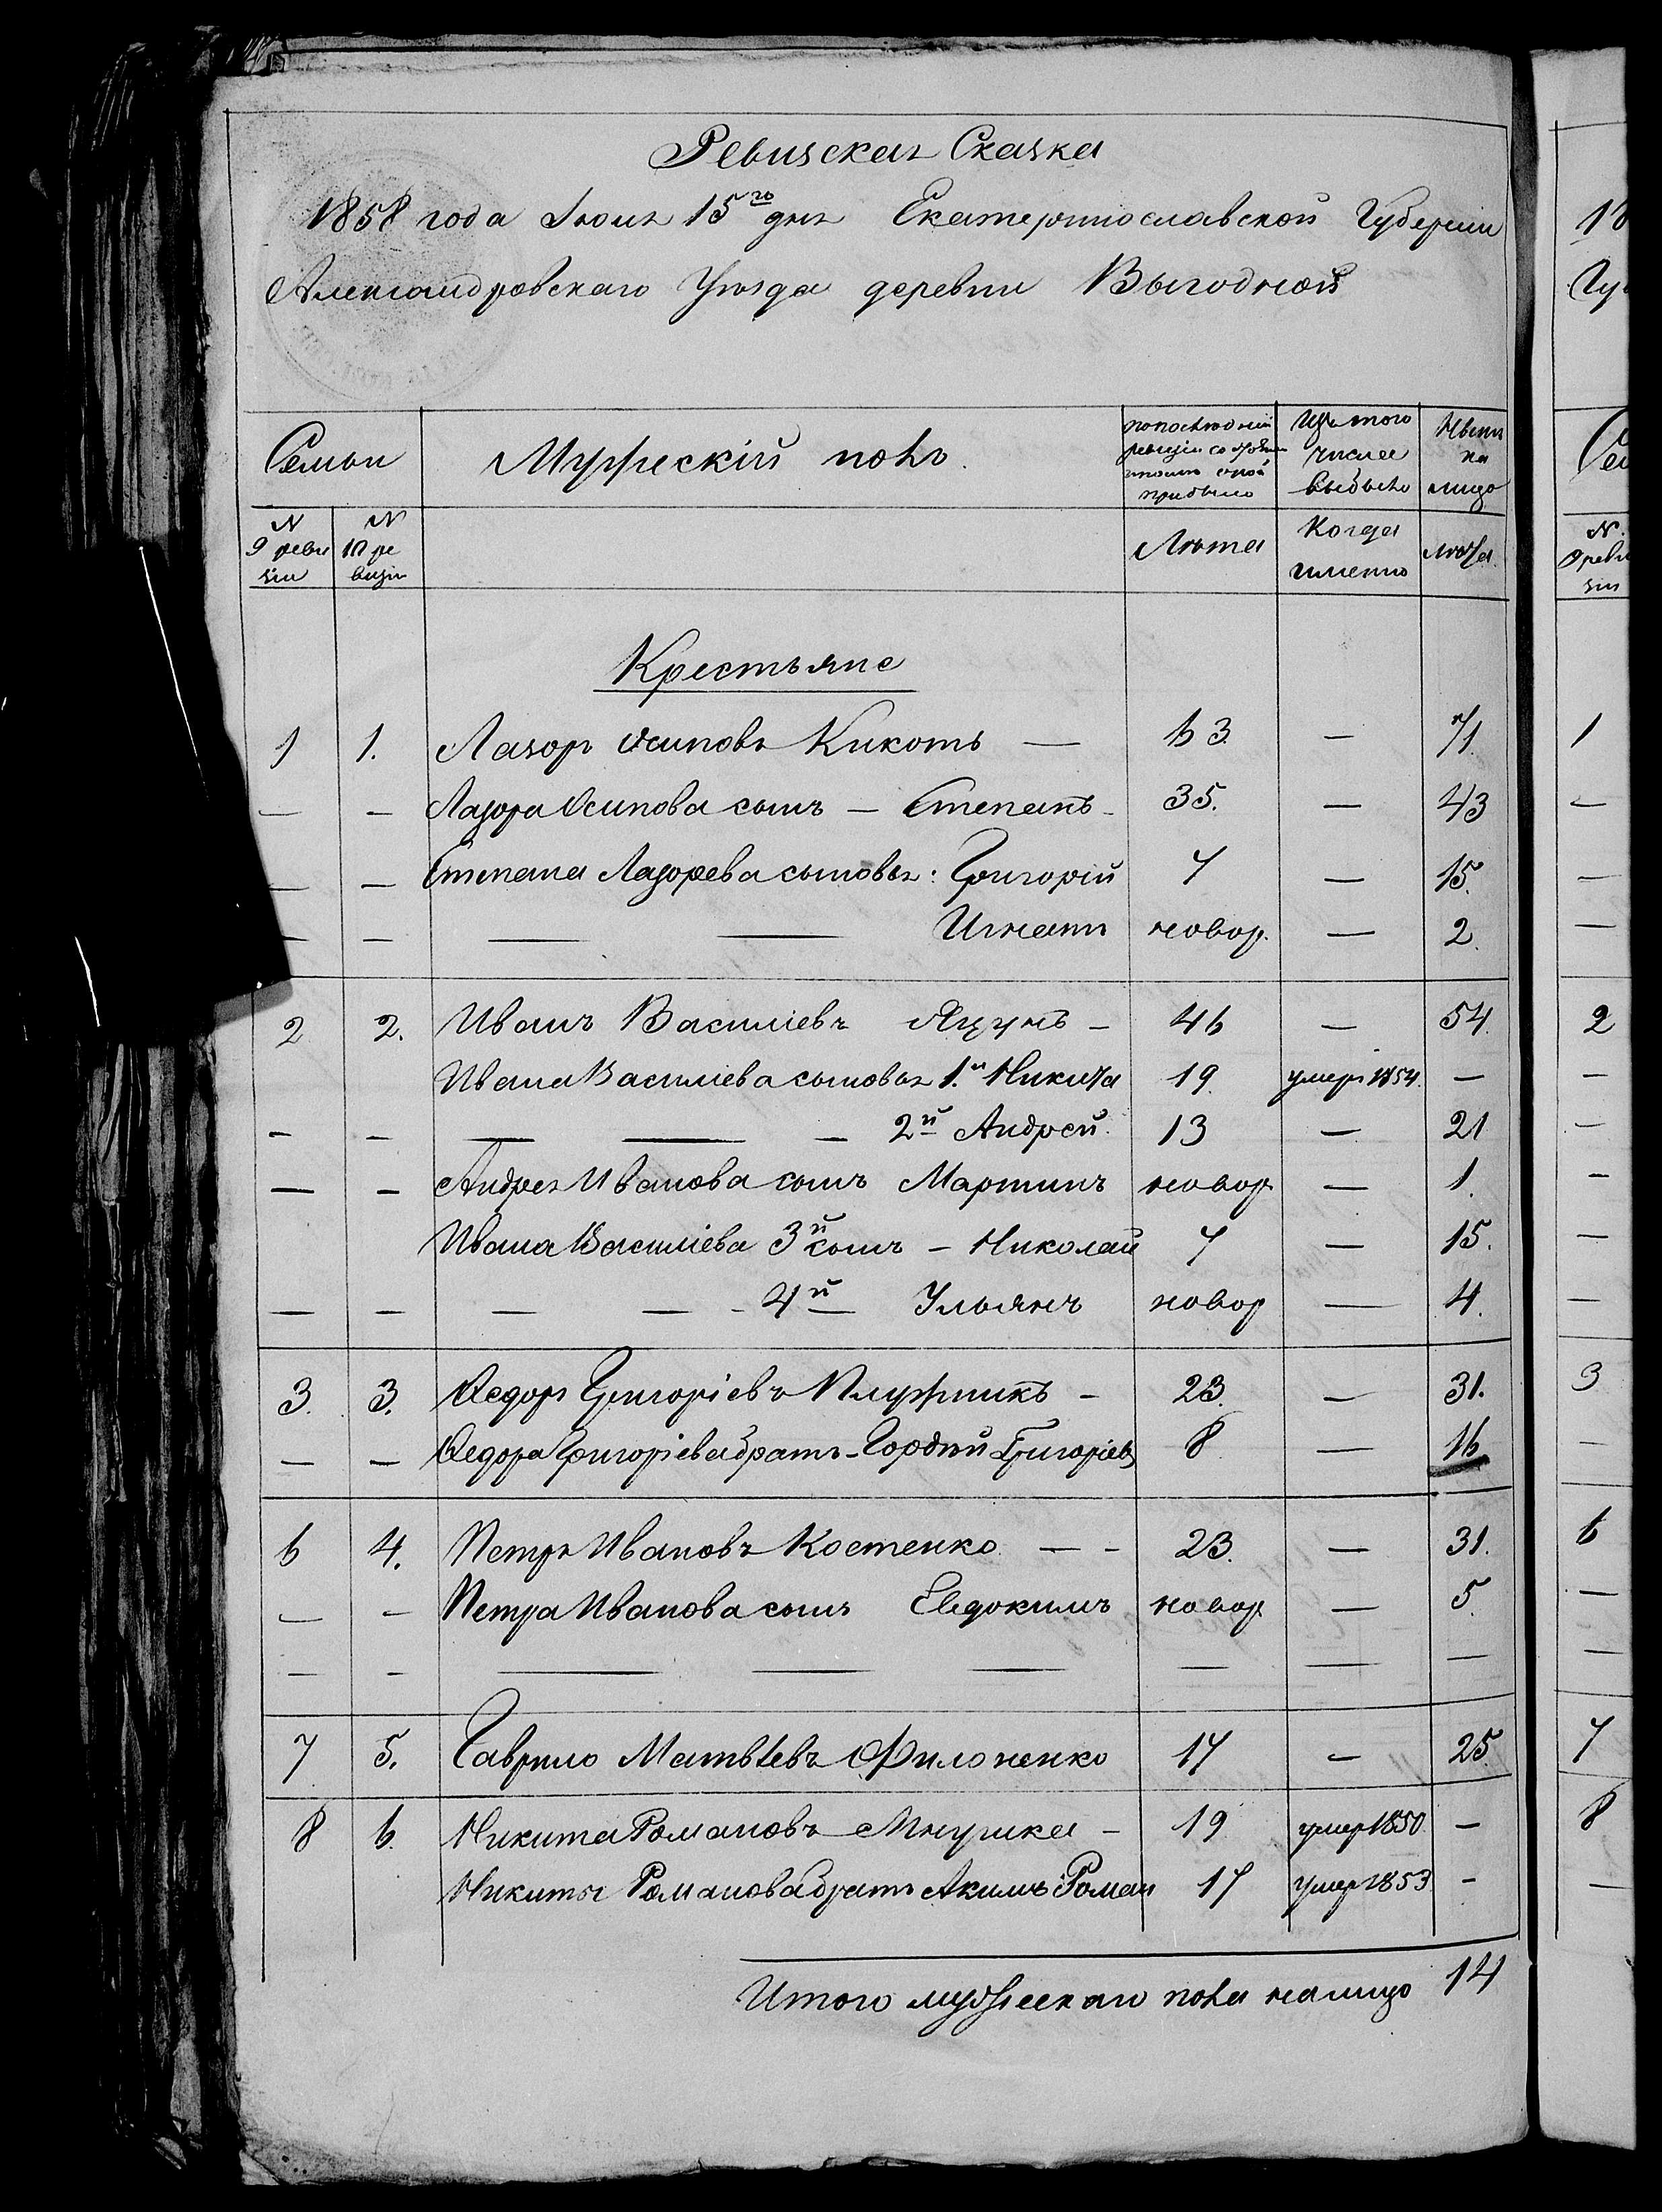 Ревизская Сказка
1858 года Июня 15го дня Екатеринославской Губерніи
Александровскаго Уѣзда деревни Выгодной
Семьи Мужескій полъ По последней ревизіи состояло и после оной прибыло Изъ того числа выбыло Нынѣ на лицо
N 9 ревизіи N 10 ревизіи Лѣта Когда именно Лѣта
Крестьяне
1 1. Лазорь Осиповъ Кикоть — 63. — 71.
— — Лазоря Осипова сынъ — Степанъ - 35. — 43
— — Степана Лазорева сыновья: Григорій 7 — 15.
— — — — Игнатъ новор. — 2.
2 2. Иванъ Василіевъ Яцунъ - 46 — 54.
Ивана Василіева сыновья 1.й Никита 19. умеръ 1854. —
— — — — — 2й Андрей. 13 — 21
— — Андрея Иванова сынъ Мартинъ новор — 1.
Ивана Василіева 3й сынъ — Николай 7 — 15.
— — — — - 4й — Ульянъ новор — 4.
3. 3. Федоръ Григоріевъ Плужникъ - 23. — 31.
— — Федора Григоріева братъ - Гордѣй Григоріевъ 8. — 16
6 4. Петръ Ивановъ Костенко — - 23. — 31.
— — Петра Иванова сынъ Евдокимъ новор — 5.
— — — — — — — —
7 5. Гаврило Матвѣевъ Филоненко 17 — 25.
8 6. Никита Романовъ Мнушка - 19. умер 1850. —
Никиты Романова братъ Акимъ Роман 17 умер 1853. -
Итого мужескаго пола налицо 14
18
Гу
Се
N. 9 реви зіи
1
—
—
—
2
—
—
—
—
—
3
—
6
—
—
7
8
—